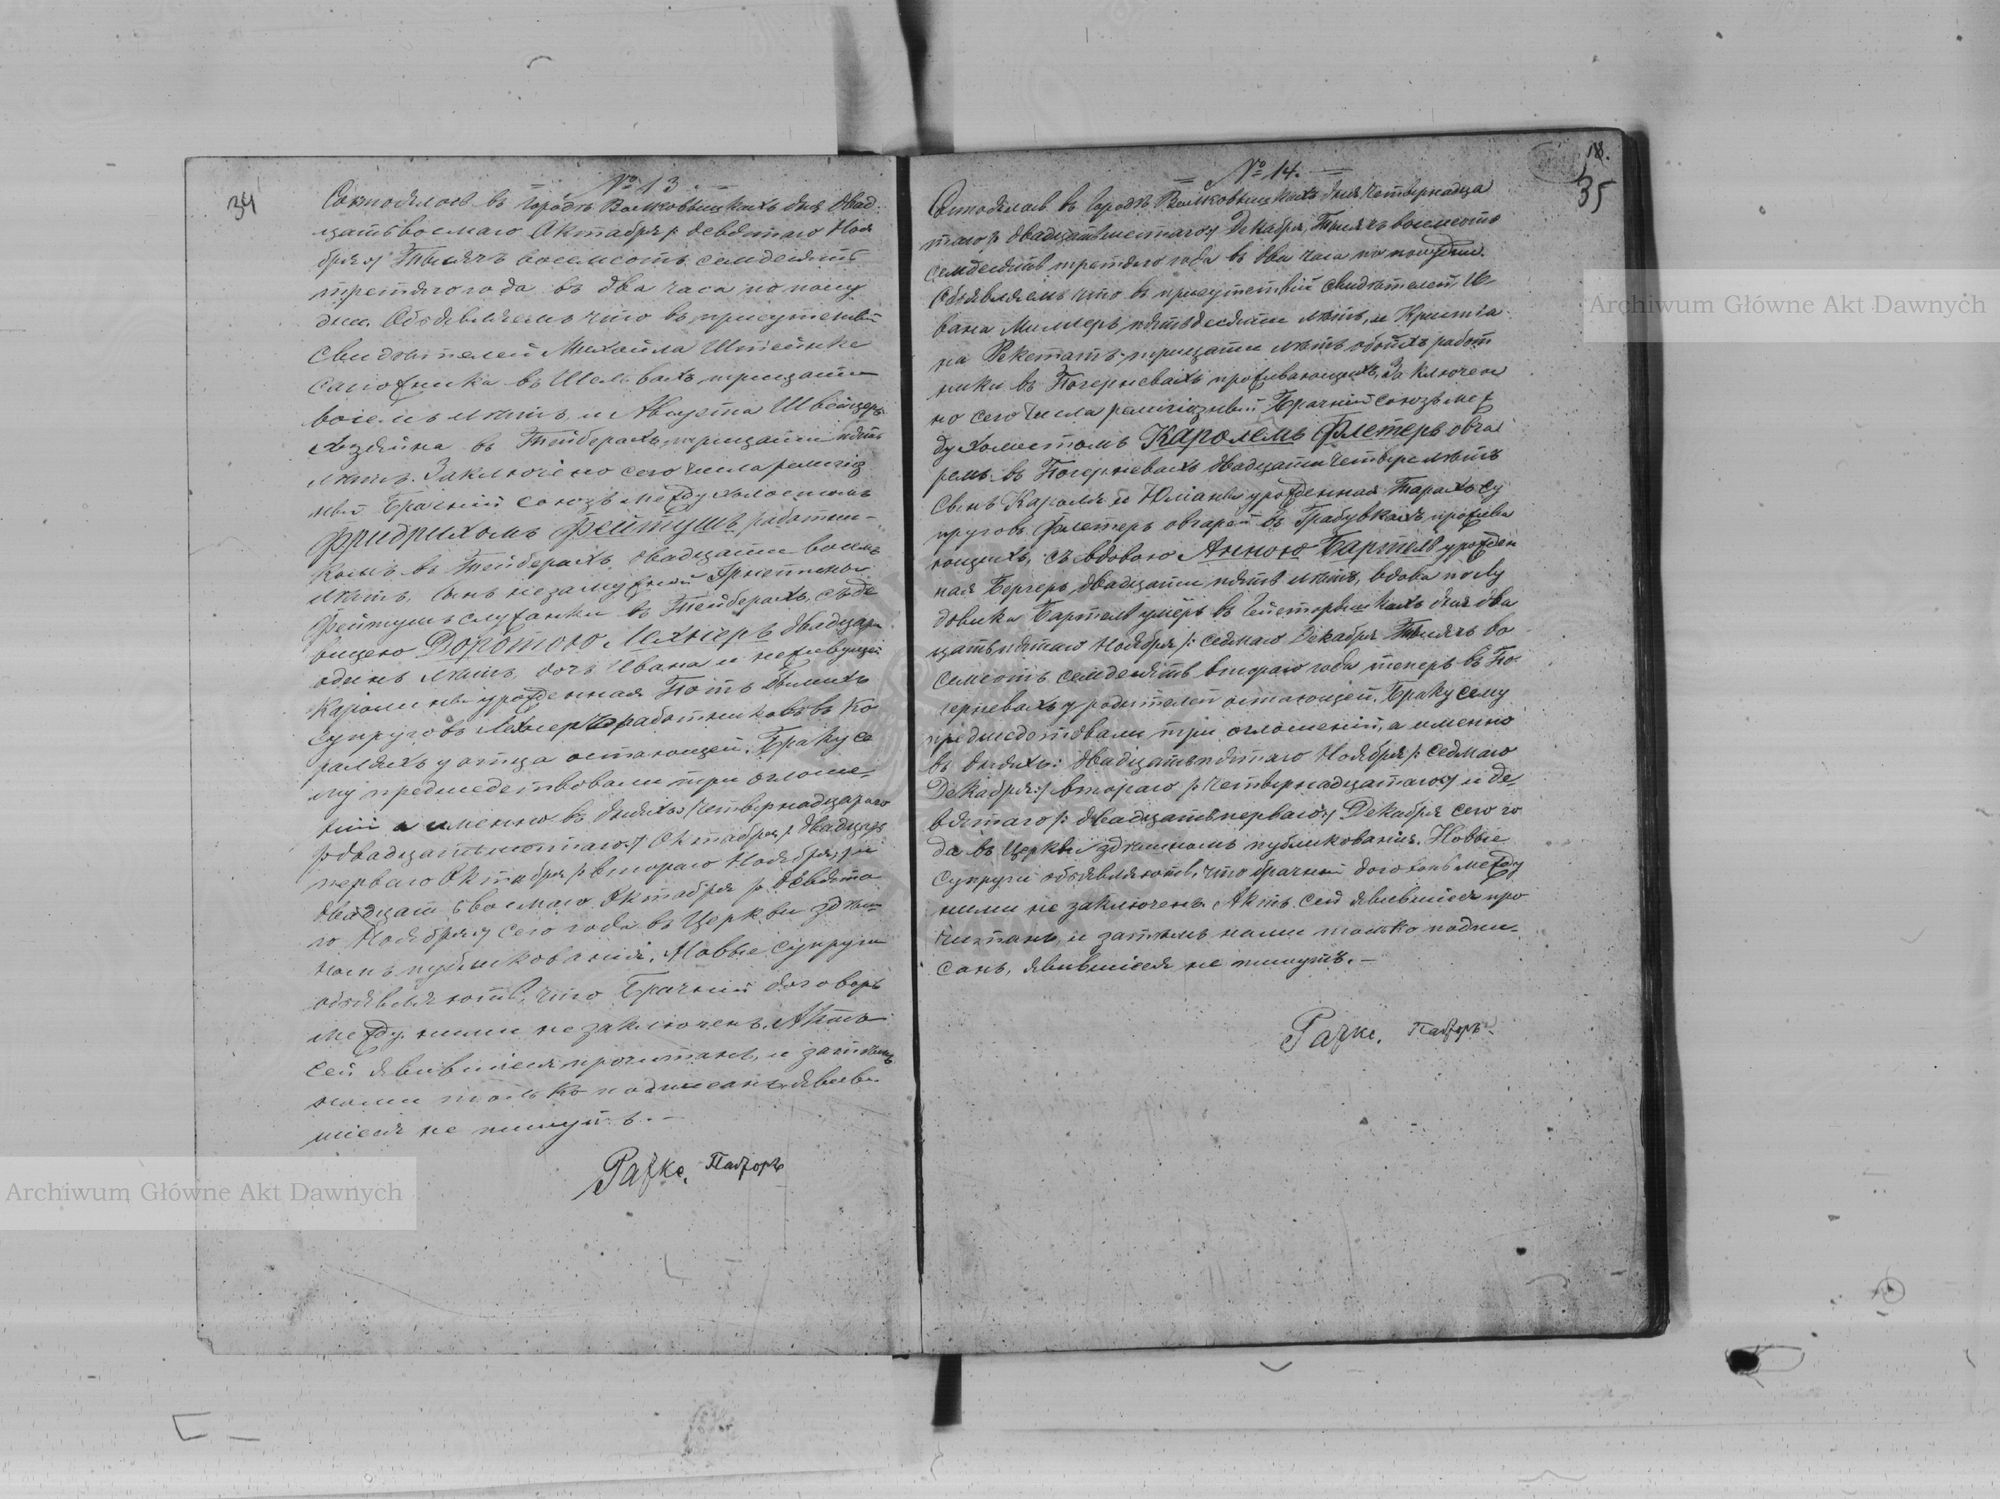 34
№ 13.
Состоялось въ городѣ Волковышкахъ дня двад-
цать восьмаго Октября /: девятаго Ноя
бря :/ Тысяча восемсотъ семдесятъ
третяго года въ два часа по полу
дни. Объявляемъ что въ присутствіи
Свидѣтелей Михайла Штейнке
сапожника въ Шельвахъ тридцати
восемь лѣтъ и Августа Швейцеръ
хозяина въ Тейберахъ, тридцати пять
лѣтъ. Заключено сего числа религіоз
ный Брачный союзъ между холостымъ
Фридрихомъ Фейтушъ, работни-
комъ въ Тейберахъ, двадцати восемь
лѣтъ, сынъ незамужней
Фейтушъ служанки въ Тейберахъ, съ де
вицею Доротою Лехнеръ двадцати
одинъ лѣтъ, дочь Ивана и неживущей
Каролины урожденная Потъ бывшихъ
Супруговъ Лехнеръ работниковъ въ Ко
ралахъ у отца остающей. Браку се
му предшедствовали три оглаше-
нія а именно въ дняхъ: Четвернадцатаго
/: двадцать шестаго :/ Октября /: двадцать
перваго Октября /: втораго Ноября :/ и
двадцать восьмаго Октября /: девята
го Ноября :/ сего года въ Церкви здѣш-
номъ публикованія. Новые супруги
объявляютъ, что Брачный договоръ
между ними не заключенъ. Актъ
сей явившіеся прочитанъ, и затѣмъ
нами только подписанъ, явив-
шіеся не пишутъ. —
Пасторъ
18.
35
№ 14.
Состоялось въ городѣ Волковышкахъ дня Четвернадца
таго /: двадцать шестаго :/ Декабря, Тысяча восемсотъ
семдесятъ третяго года въ два часа по полудни.
Объявляемъ что въ присутствіи свидѣтелей, И-
вана Миллеръ, пятьдесяти лѣтъ, и Кристіа
на Рекетатъ, тридцати лѣтъ обоихъ работ
ники въ Погерневахъ проживающихъ, Заключен
но сего числа религіозный Брачный союзъ меж
ду холостымъ Каролемъ Флетеръ овча
ремъ въ Погерневахъ двадцати четыре лѣтъ
сынъ Кароля и Юліаны урожденная Тарахъ су
пруговъ Флетеръ овчарей въ Грабувкахъ, прожива
ющихъ, съ вдовою Анною Бартель урожден
ная Бергеръ двадцати пять лѣтъ, вдова по Лу
довика Бартель умеръ въ дня два
цать пятаго Ноября /: седмаго Декабря Тысяча во
семсотъ семдесятъ втораго года теперь въ По-
герневахъ у родителей остающей. Браку сему
предшедствовали три оглашеній, а именно
въ дняхъ: двадцать пятаго Ноября /: седмаго
Декабря :/ втораго /: Четвернадцатаго :/ и де-
вятаго /: двадцать перваго :/ Декабря сего го
да въ Церкви здѣшномъ публикованія. Новые
супруги объявляютъ, что брачный договоръ между
ними не заключенъ. Актъ сей явившіеся про
читанъ, и затѣмъ нами только подпи-
санъ, явившіеся не пишутъ. —
Пасторъ.
Archiwum Główne Akt Dawnych
Archiwum Główne Akt Dawnych